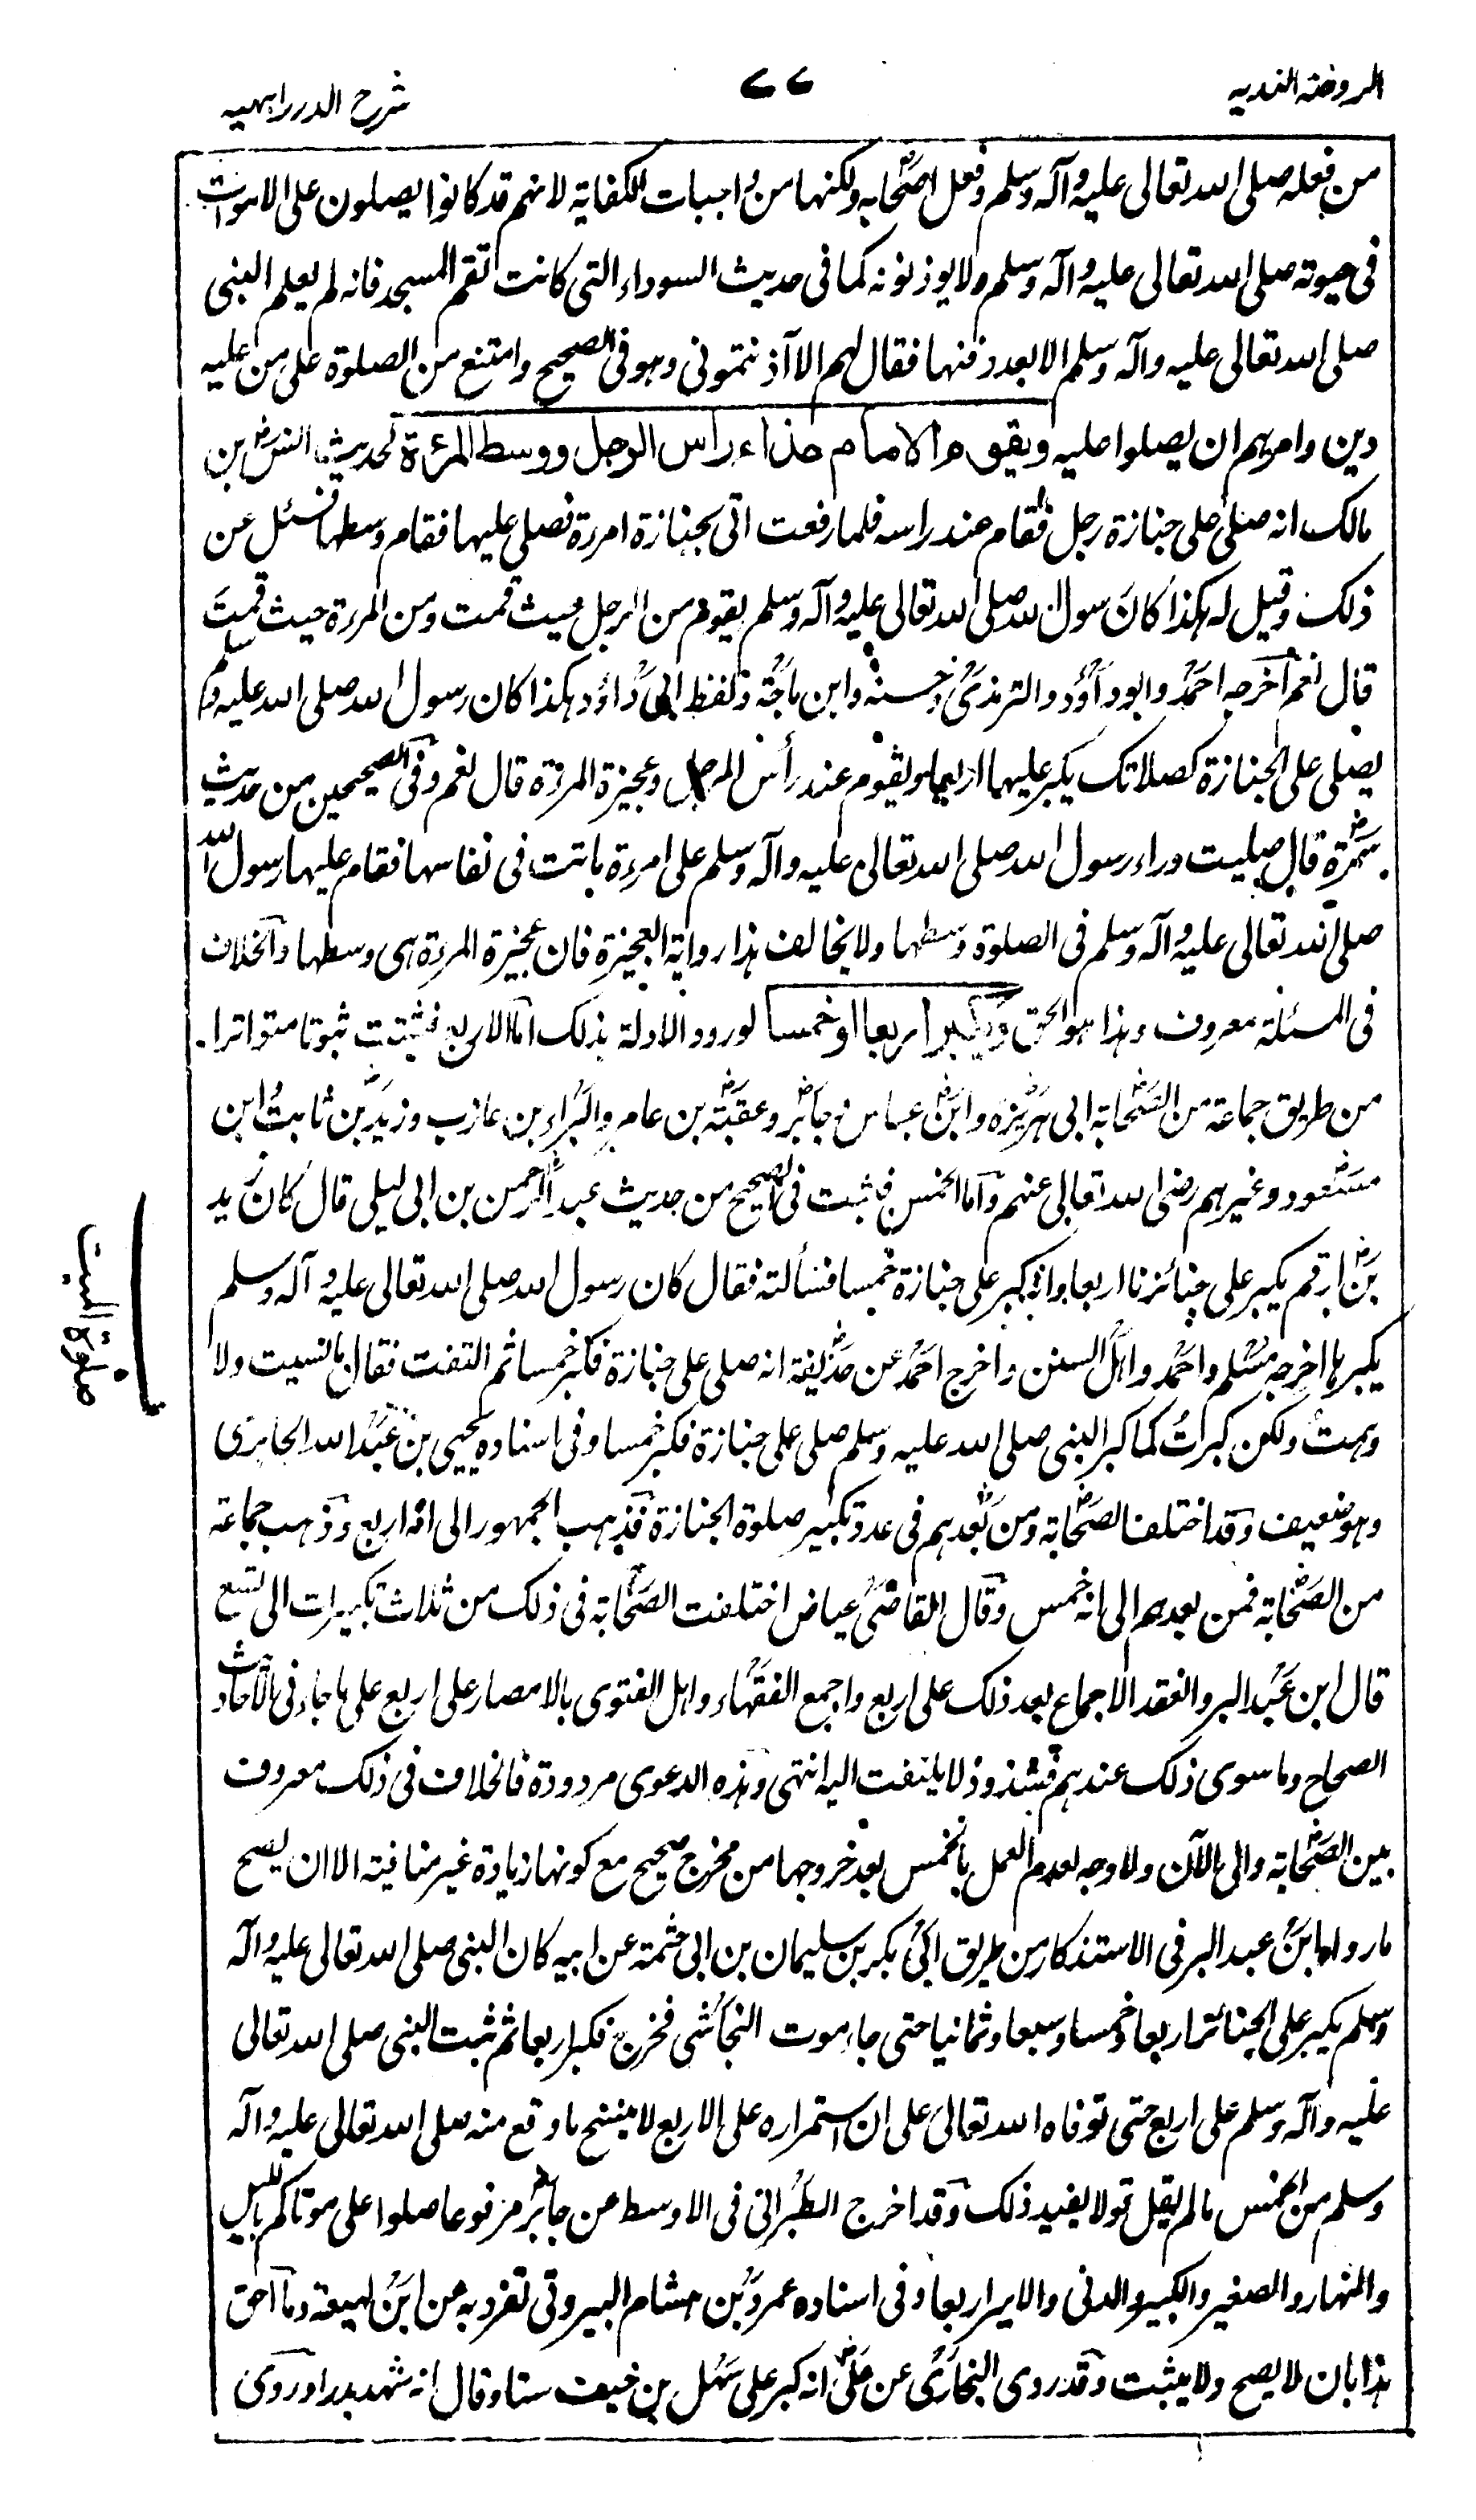 الروضة الندیه
۷۷
شرح الدرر البهیه
من فعله صلی الله تعالی علیه وآله وسلم وفعل اصحابه ولکنها من واجبات الکفایة لانهم قد کانوا یصلون علی الاموات
فی حیوته صلی الله تعالی علیه وآله وسلم ولا یوذنونه کما فی حدیث السوداء التی کانت تقم المسجد فانه لم یعلم النبی
صلی الله تعالی علیه وآله وسلم الا بعد دفنها فقال لهم الا آذنتمونی وهو فی الصحیح وامتنع من الصلوة علی من علیه
دین وامرهم ان یصلوا علیه ویقوم الامام حذاء راس الرجل ووسط المرءة لحدیث انس بن
مالک انه صلی علی جنازة رجل فقام عند راسه فلما رفعت اتی بجنازة امرءة فصلی علیها فقام وسطها فسئل عن
ذلک وقیل له هکذا کان رسول الله صلی الله تعالی علیه وآله وسلم یقوم من الرجل حیث قمت ومن المرءة حیث قمت
قال نعم اخرجه احمد وابو داؤد والترمذی وحسنه وابن ماجة ولفظ ابی داؤد هکذا کان رسول الله صلی الله علیه وسلم
یصلی علی الجنازة کصلاتک یکبر علیها اربعا ویقوم عند رأس الرجل وعجیزة المرءة قال نعم وفی الصحیحین من حدیث
سمرة قال صلیت وراء رسول الله صلی الله تعالی علیه وآله وسلم علی امرءة ماتت فی نفاسها فقام علیها رسول الله
صلی الله تعالی علیه وآله وسلم فی الصلوة وسطها ولا یخالف هذا روایة العجیزة فان عجیزة المرءة هی وسطها والخلاف
فی المسئلة معروف وهذا هو الحق ویکبر اربعا او خمسا لورود الادلة بذلک اما الاربع فثبتت ثبوتا متواترا.
من طریق جماعة من الصحابة ابی هریرة وابن عباس وجابر وعقبة بن عامر والبراء بن عازب وزید بن ثابت وابن
مسعود وغیرهم رضی الله تعالی عنهم واما الخمس فثبت فی الصحیح من حدیث عبد الرحمن بن ابی لیلی قال کان زید
بن ارقم یکبر علی جنائزنا اربعا وانه کبر علی جنازة خمسا فسألته فقال کان رسول الله صلی الله تعالی علیه وآله وسلم
یکبرها اخرجه مسلم واحمد واهل السنن واخرج احمد عن حذیفة انه صلی علی جنازة فکبر خمسا ثم التفت فقال ما نسیت ولا
وهمت ولکن کبرت کما کبر النبی صلی الله علیه وسلم صلی علی جنازة فکبر خمسا وفی اسناده یحیی بن عبد الله الجابری
وهو ضعیف وقد اختلف الصحابة ومن بعدهم فی عدد تکبیر صلوة الجنازة فذهب الجمهور الی انه اربع وذهب جماعة
من الصحابة فمن بعدهم الی انه خمس وقال القاضی عیاض اختلفت الصحابة فی ذلک من ثلاث تکبیرات الی تسع
قال ابن عبد البر وانعقد الاجماع بعد ذلک علی اربع واجمع الفقهاء واهل الفتوی بالامصار علی اربع علی ما جاء فی الاحادیث
الصحاح وما سوی ذلک عندهم فشذوذ لا یلتفت الیه انتهی وهذه الدعوی مردودة فالخلاف فی ذلک معروف
بین الصحابة والی الآن ولا وجه لعدم العمل بالخمس بعد خروجها من مخرج صحیح مع کونها زیادة غیر منافیة الا ان یصح
ما رواه ابن عبد البر فی الاستذکار من طریق ابی بکر بن سلیمان بن ابی حثمة عن ابیه کان النبی صلی الله تعالی علیه وآله
وسلم یکبر علی الجنائز اربعا وخمسا وسبعا وثمانیا حتی جاء موت النجاشی فخرج فکبر اربعا ثم ثبت النبی صلی الله تعالی
علیه وآله وسلم علی اربع حتی توفاه الله تعالی علی ان استمراره علی الاربع لا ینسخ ما وقع منه صلی الله تعالی علیه وآله
وسلم من الخمس ما لم یقل قولا یفید ذلک وقد اخرج الطبرانی فی الاوسط عن جابر مرفوعا صلوا علی موتاکم باللیل
والنهار والصغیر والکبیر والدنی والامیر اربعا وفی اسناده عمرو بن هشام البیروتی تفرد به عن ابن لهیعة وما احق
هذا بان لا یصح ولا یثبت وقد روی البخاری عن علی انه کبر علی سهل بن حنیف ستا وقال انه شهد بدرا وروی
صلوة المیت